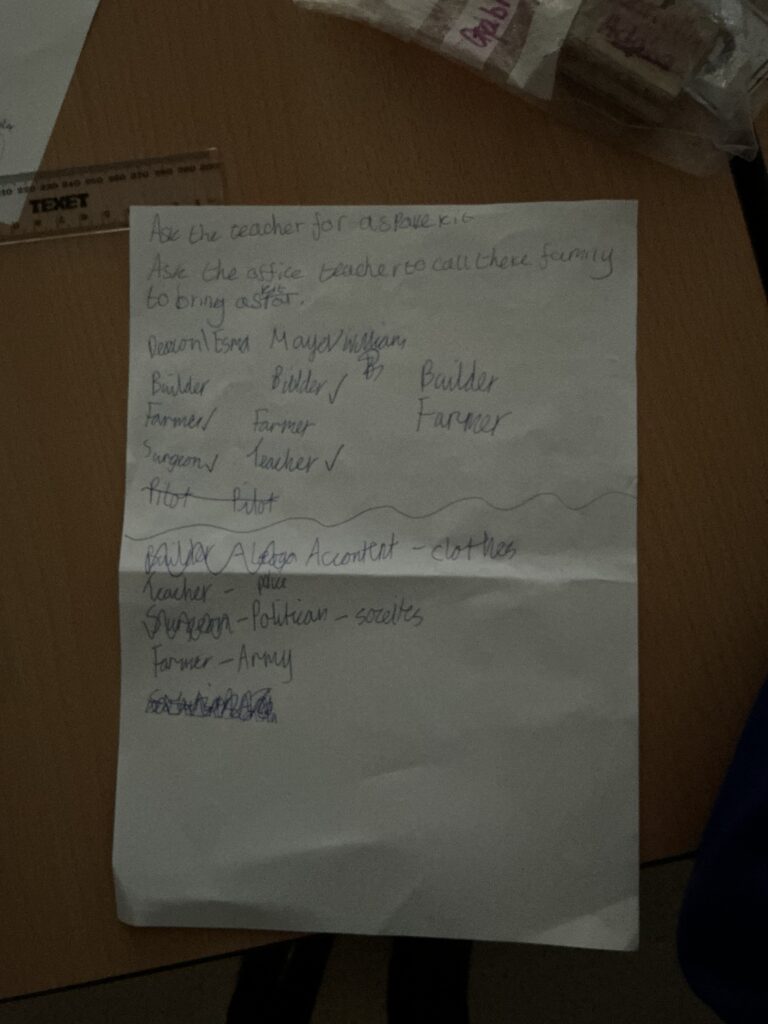 TEXET
Ask the teacher for a spare kit
Ask the office teacher to call there family
to bring a
Deacon/Esma Mayer/William
Builder Bilder ✓ Builder
Farmer ✓ Farmer Farmer
Surgeon ✓ Teacher ✓
Pilot Pilot
Builder Accontent - clothes
Teacher - police
Surgeon - Politican - soceites
Farmer - Army